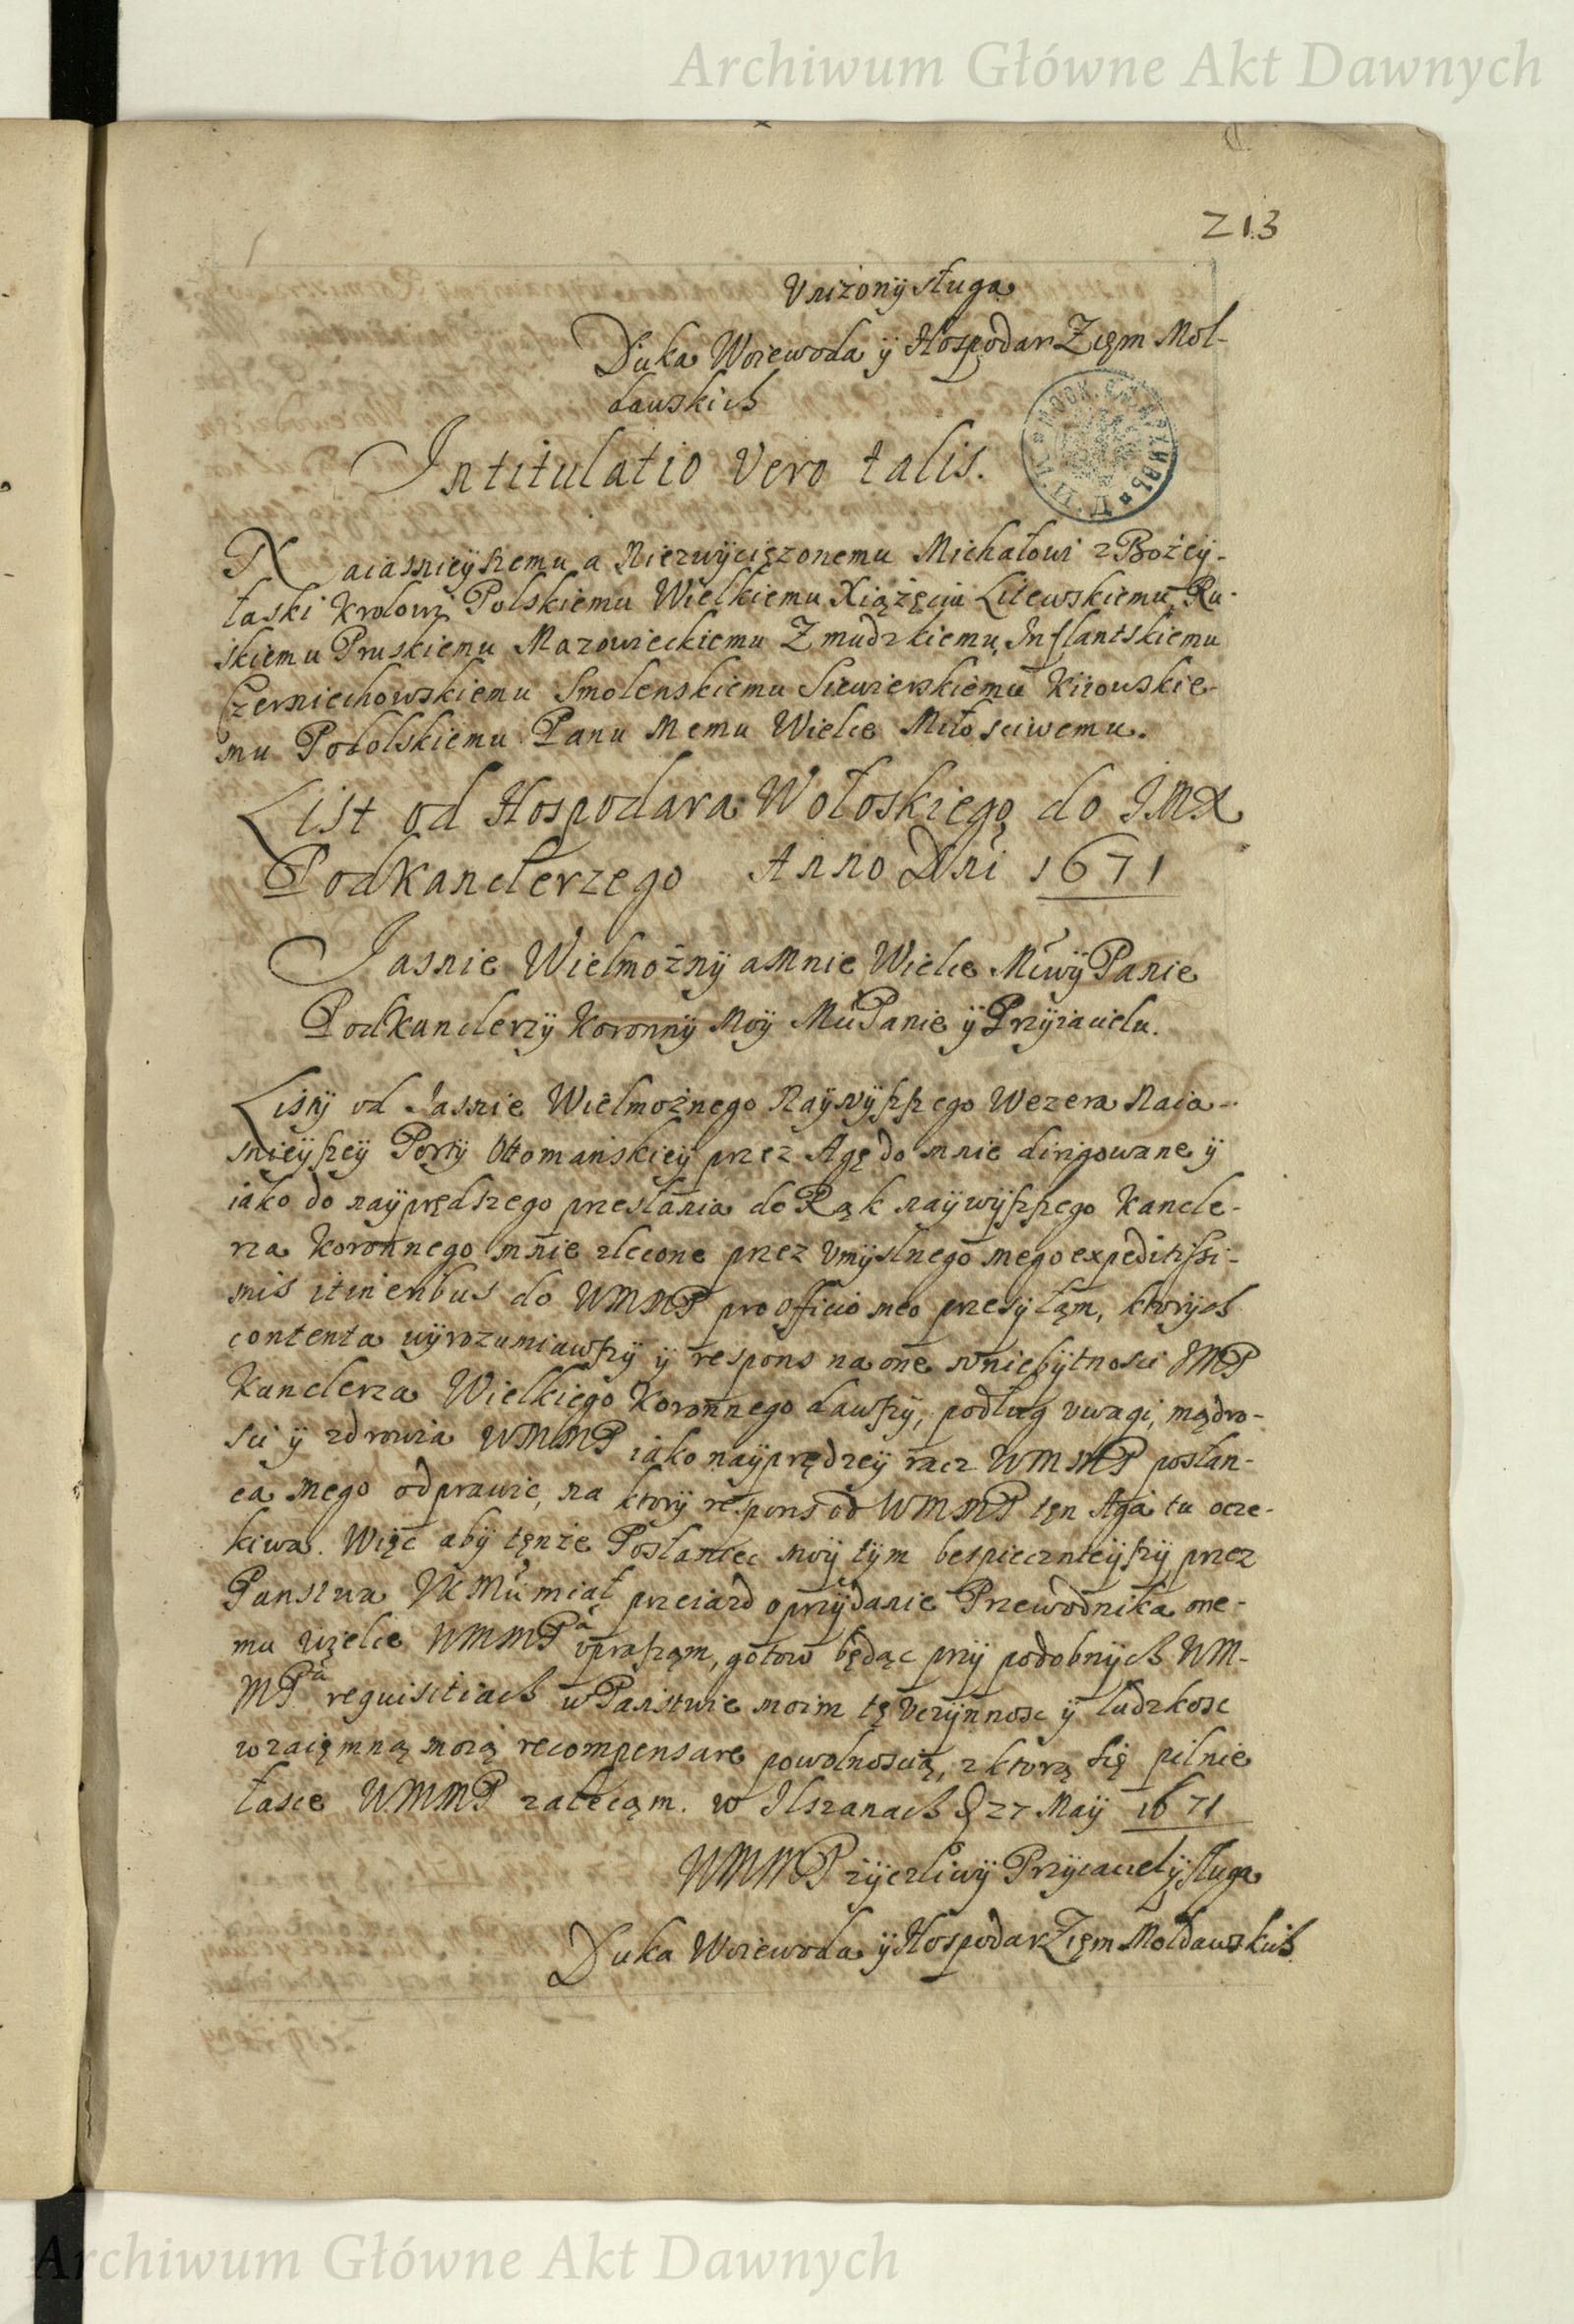 Archiwum Główne Akt Dawnych
213
Vniżonÿ sługa
Duka Woiewoda ÿ Hospodar Zięm Mol-
dauskich
Intitulatio vero talis.
Naiasnieÿszemu a Niezwÿciężonemu Michałowi z Bożeÿ
łaski Krolowi Polskiemu Wielkiemu Xiążęciu Litewskiemu, Ru-
skiemu Pruskiemu Mazowieckiemu Zmudzkiemu, Inflantskiemu
Czerniechowskiemu Smolenskiemu Siewierskiemu Kiiowskie-
mu Podolskiemu Panu Memu Wielce Miłosciwemu.
List od Hospodara Wołoskiego do IMX
Podkanclerzego Anno Dni 1671
Jasnie Wielmożnÿ a Mnie Wielce Mćiwÿ Panie
Podkanclerzÿ Koronnÿ Moÿ Mći Panie ÿ Przÿiacielu.
Listÿ od Jasnie Wielmożnego Naÿwÿszszego Wezera Naia-
snieÿszeÿ Portÿ Ottomańskieÿ przez Agę do mnie dirigowane ÿ
iako do naÿprędszego przesłania do Rąk naÿwÿszszego Kancle-
rza Koronnego mnie zlecone przez Vmÿslnego mego expeditissi-
mis itineribus do WMMP pro officio meo przesÿłąm, ktorÿch
contenta wÿrozumiawszÿ ÿ respons na one w niebÿtnosci JMP
Kanclerza Wielkiego Koronnego dawszÿ, podług vwagi, mądro-
sci ÿ zdrowia WMMP iako naÿprędzeÿ racz WMMP posłan-
ca mego odprawic, na ktorÿ respons od WMMP tęn Aga tu ocze-
kiwa. Więc abÿ tęnże Posłaniec moÿ tÿm bespiecznieÿszÿ przez
Panstwa JK Mći miał przeiazd o przÿdanie Przewodnika one-
mu wielce WMMPa vprasząm, gotow będąc przÿ podobnÿch WM-
MPa requisitiach w Państwie moim tę vczÿnnosc ÿ ludzkosc
wzaięmną moią recompensare powolnoscią, z ktorą się pilnie
łasce WMMP zalecąm. w Ilszanach d 27 Maÿ 1671
WMMP zÿczliwÿ Przÿiaciel ÿ sługa
Duka Woiewoda ÿ Hospodar Zięm Moldawskich
Archiwum Główne Akt Dawnych